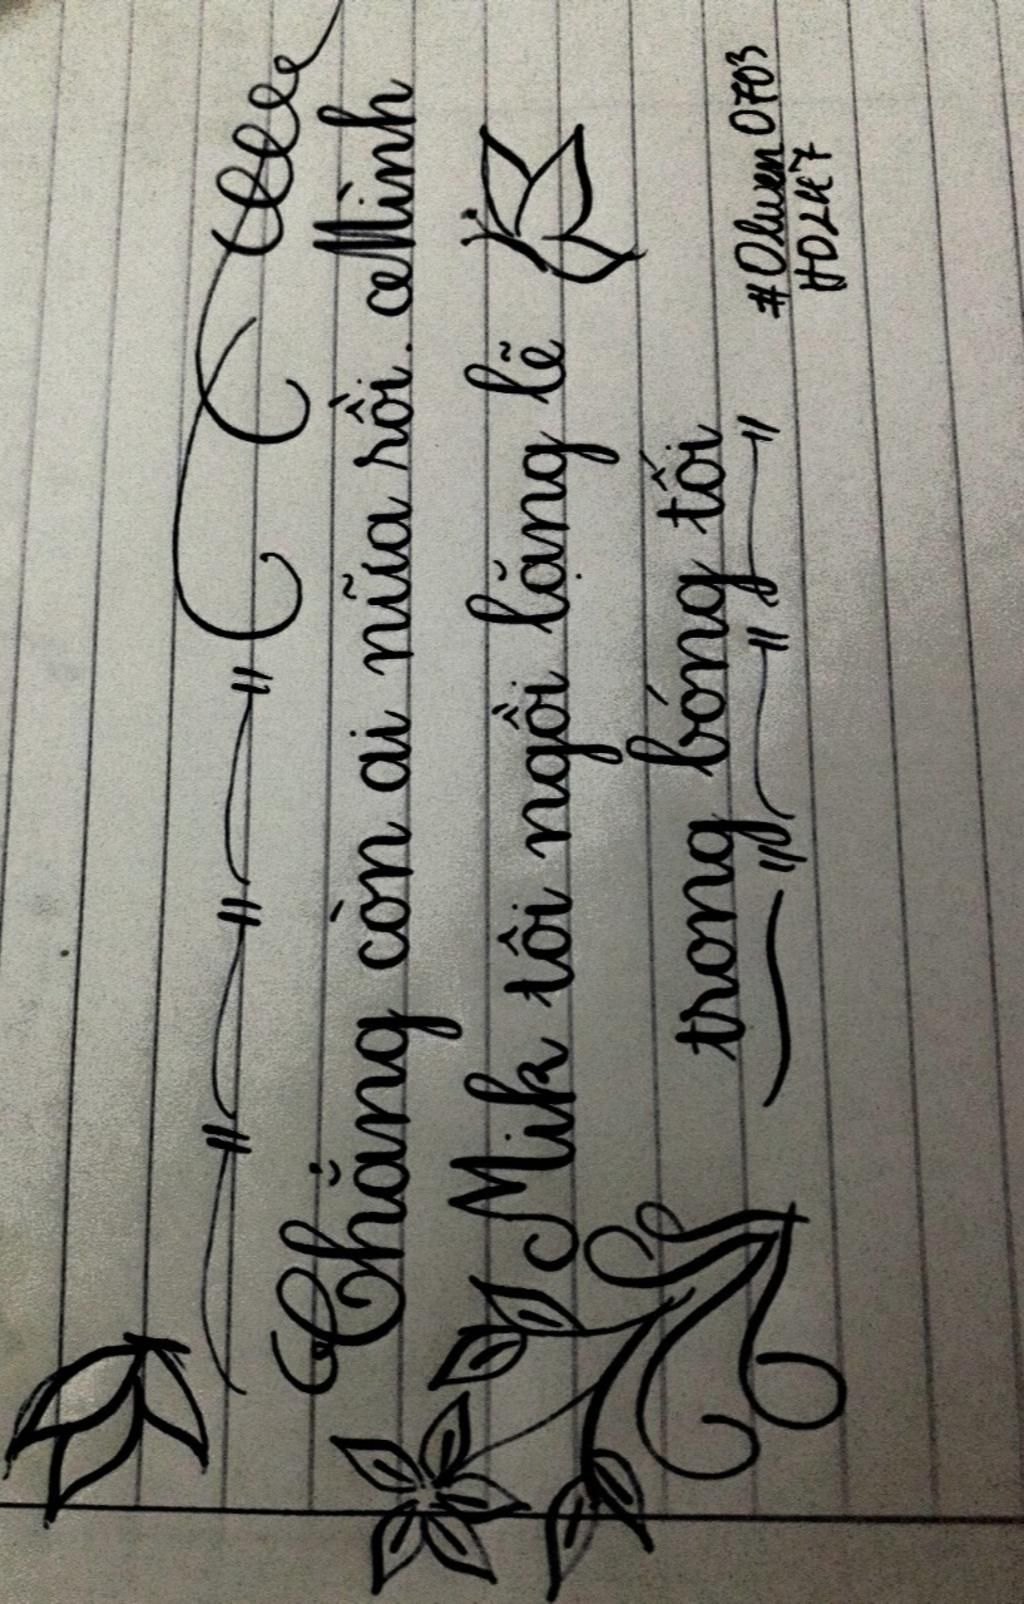 Chẳng còn ai nữa rồi. Mình
Mik tôi ngồi lặng lẽ
trong bóng tối
#Olwen0703